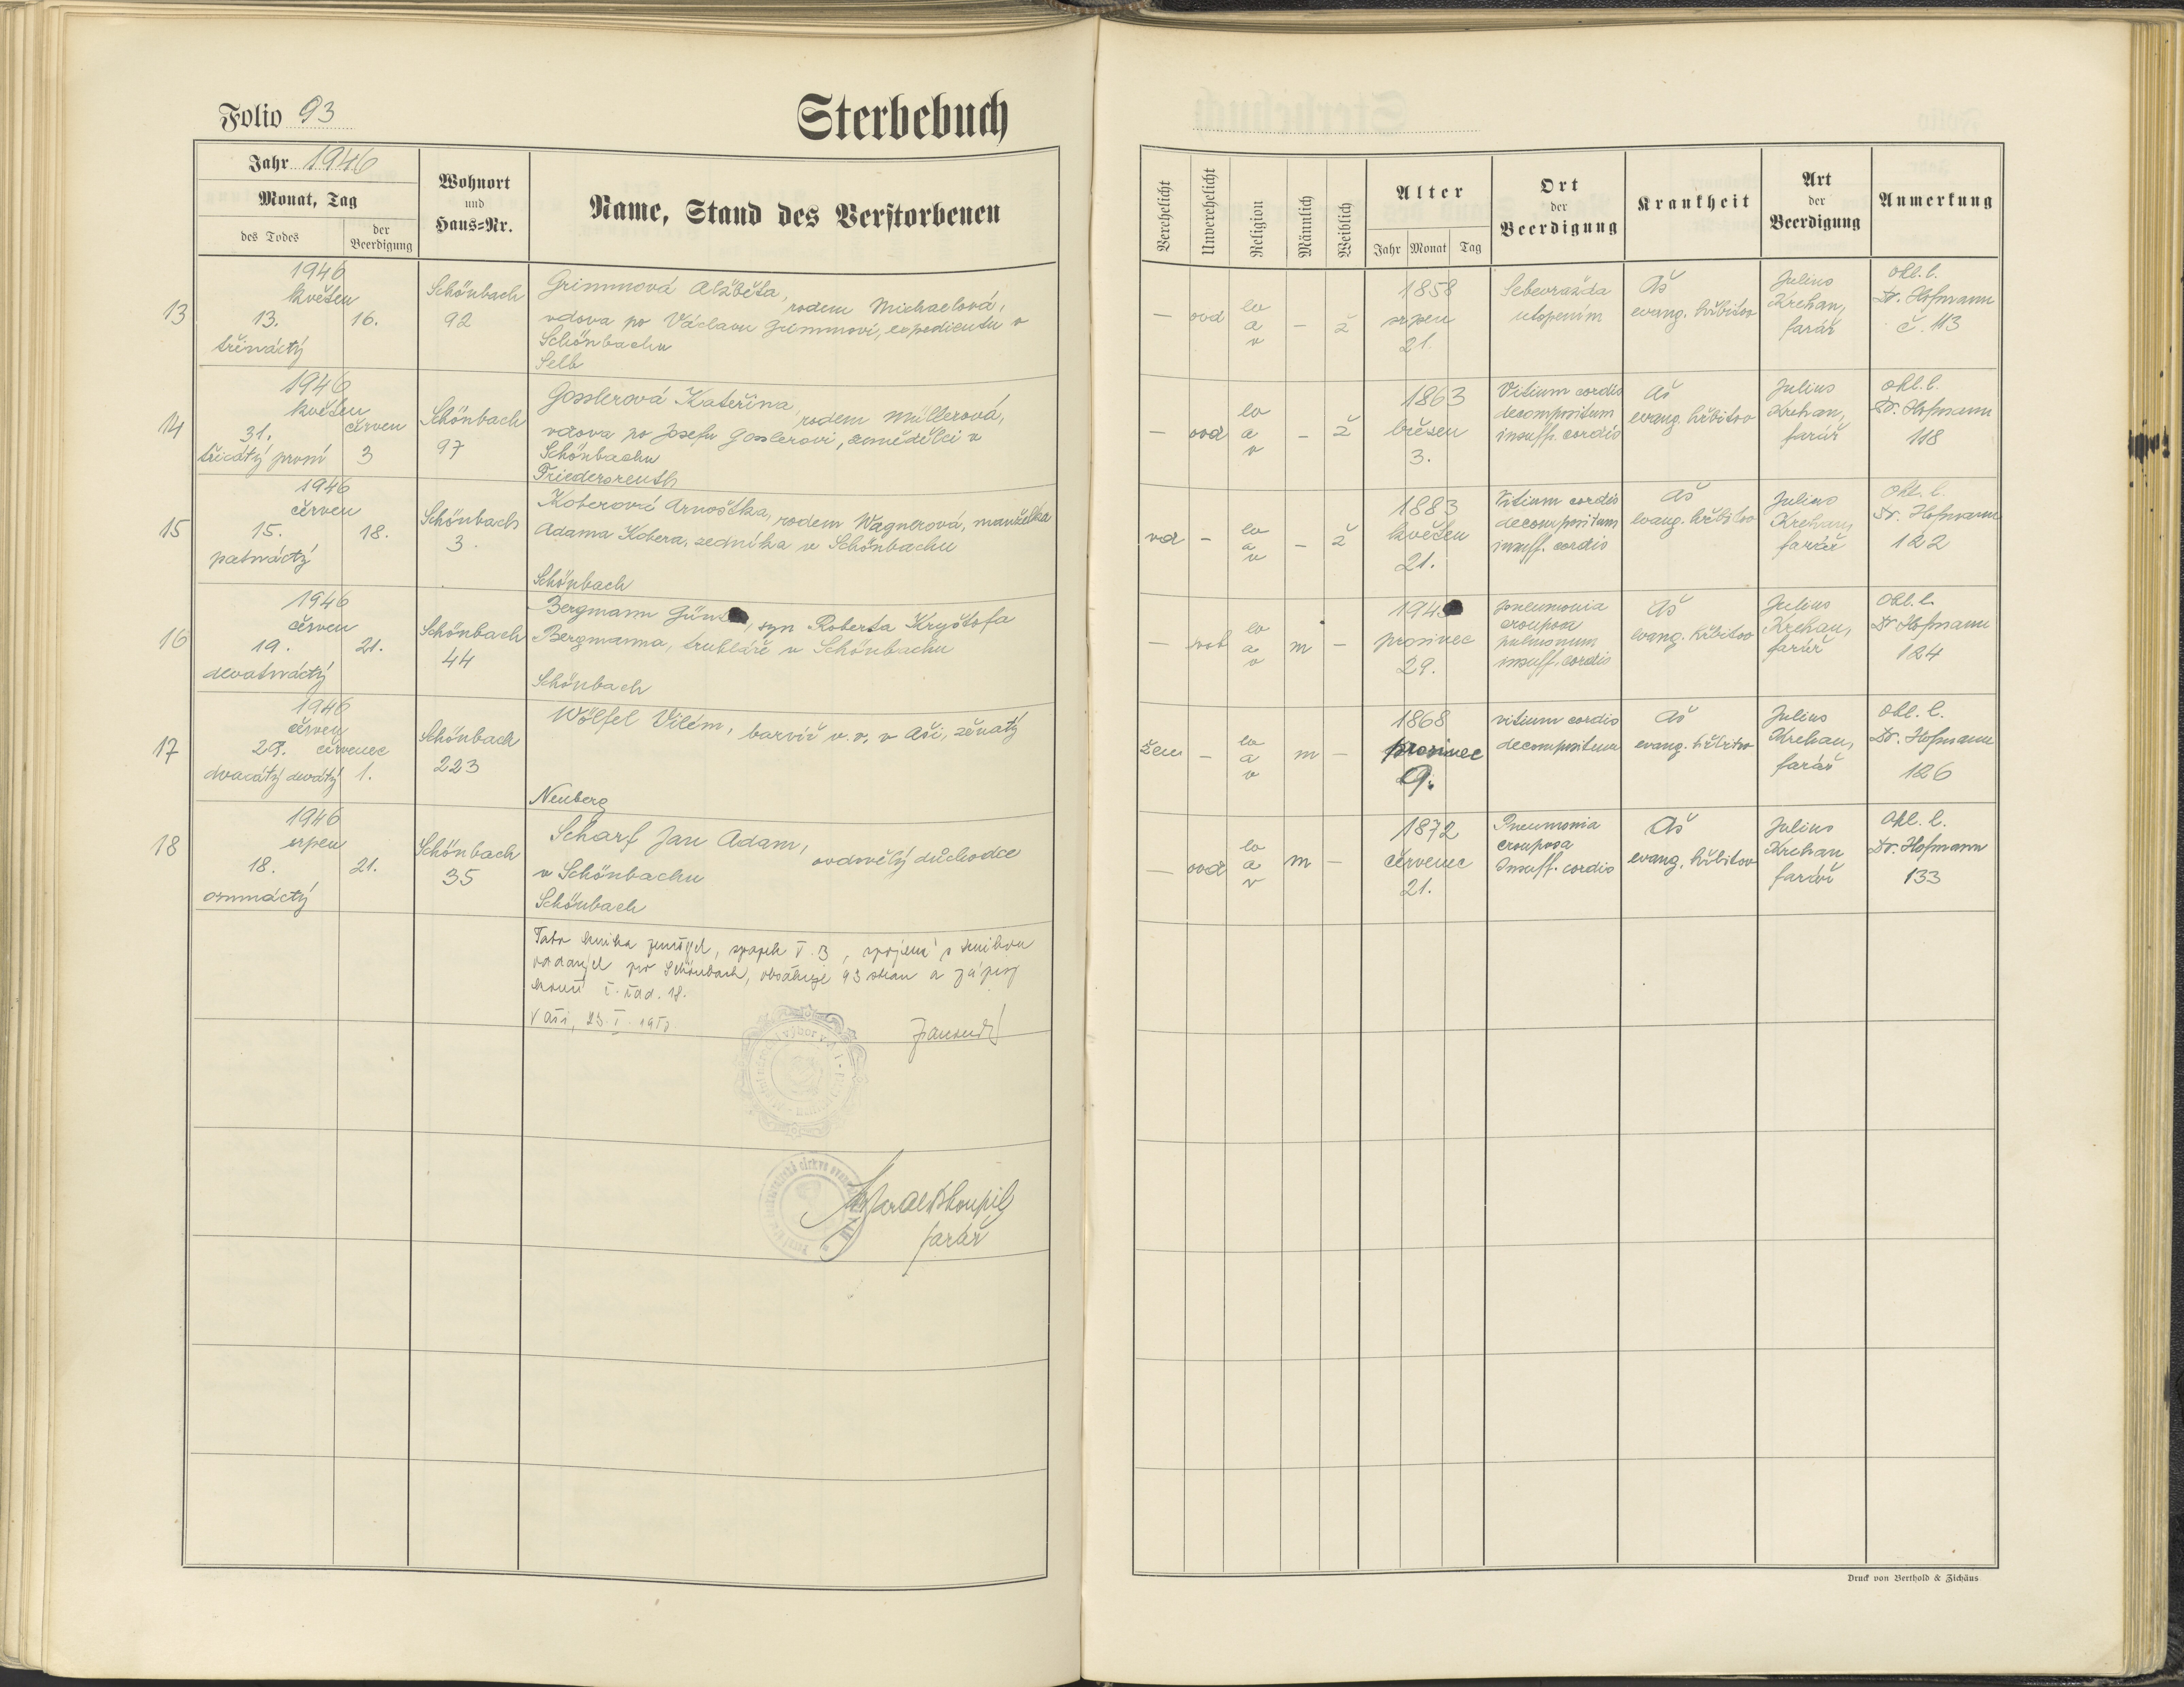 Folio 93
Sterbebuch
Jahr 1946
Monat, Tag
des Todes
der Beerdigung
Wohnort
und
Haus=Nr.
Name, Stand des Verstorbenen
13
1946
květen
13. 16.
třináctý
Schönbach
92
Grimmová Alžběta, rodem Michaelová,
vdova po Václavu Grimmovi, expedientu v
Schönbachu
Selb
14
1946
květen
31. červen
třicátý první 3
Schönbach
97
Gosslerová Kateřina, rodem Müllerová,
vdova po Josefu Gosslerovi, zemědělci v
Schönbachu
Friedersreuth
15
1946
červen
15. 18.
patnáctý
Schönbach
3.
Koberová Arnoštka, rodem Wagnerová, manželka
Adama Kobera, zedníka v Schönbachu
Schönbach
16
1946
červen
19. 21.
devatnáctý
Schönbach
44
Bergmann , syn Roberta Kryštofa
Bergmanna, truhláře v Schönbachu
Schönbach
17
1946
červen
29. červenec
dvacátý devátý 1.
Schönbach
223
Wölfel Vilém, barvíř v. v. v Aši, ženatý
Neuberg
18
1946
srpen
18. 21.
osmnáctý
Schönbach
35
Scharf Jan Adam, ovdovělý důchodce
v Schönbachu
Schönbach
Tato kniha zemřel, svazek V. B, spojená s knihou
oddaných pro Schönbach, obsahuje 93 stran a zápisy
končí č. řad. 18.
V Aši, 23. I.
farář
Verehelicht
Unverehelicht
Religion
Männlich
Weiblich
Alter
Jahr Monat Tag
Ort
der
Beerdigung
Krankheit
Art
der
Beerdigung
Anmerkung
— ovd ev a v — ž
1858
srpen
21.
Sebevražda
utopením
Aš
evang. hřbitov
Julius
Krehan,
farář
ohl. l.
Dr. Hofmann
č. 113
— ovd ev a v — ž
1863
březen
3.
Vitium cordis
decompositum
insuff. cordis
Aš
evang. hřbitov
Julius
Krehan,
farář
ohl. l.
Dr. Hofmann
118
vd — ev a v — ž
1883
květen
21.
Vitium cordis
decompositum
insuff. cordis
Aš
evang. hřbitov
Julius
Krehan,
farář
ohl. l.
Dr. Hofmann
122
— svob ev a v m —
prosinec
29.
pneumonia
crouposa
pulmonum
insuff. cordis
Aš
evang. hřbitov
Julius
Krehan,
farář
ohl. l.
Dr Hofmann
124
žen — ev a v m —
1868
prosinec
9.
vitium cordis
decompositum
Aš
evang. hřbitov
Julius
Krehan,
farář
ohl. l.
Dr. Hofmann
126
— ovd ev a v m —
1872
červenec
21.
Pneumonia
crouposa
Insuff. cordis
Aš
evang. hřbitov
Julius
Krehan
farář
ohl. l.
Dr. Hofmann
133
Druck von Berthold & Zichäus